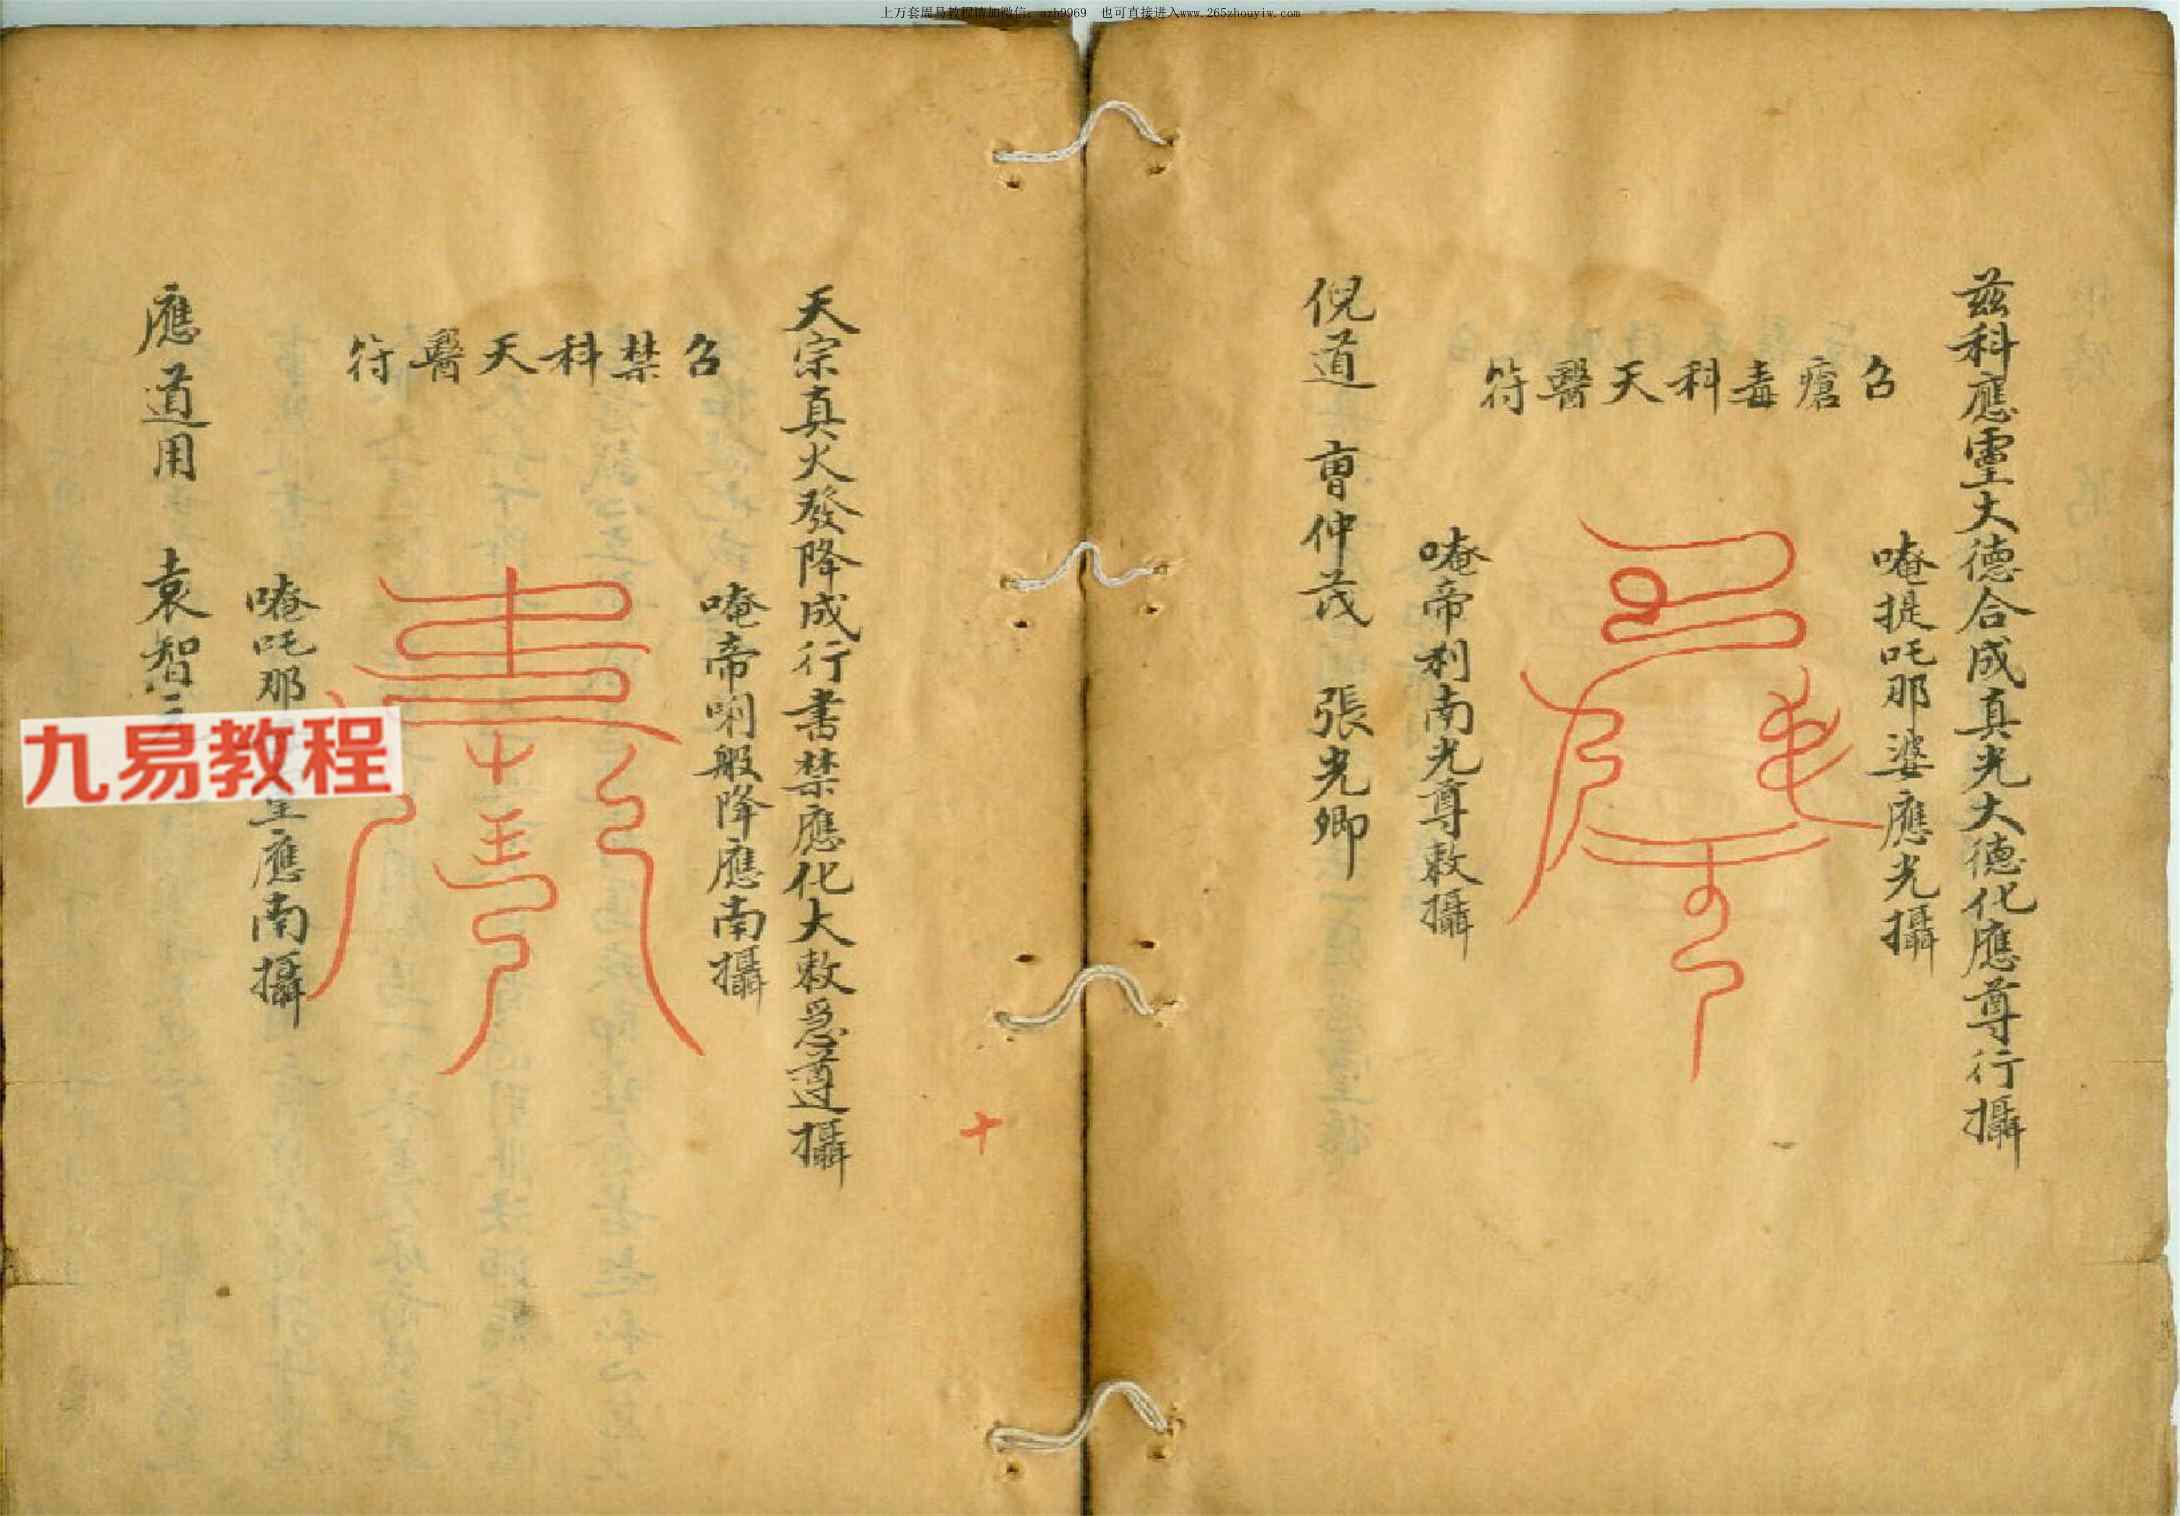 上万套周易教程请加微信：azh9969　也可直接进入www.265zhouyiw.com
茲科應靈大德合成真光大德化應尊行攝
召瘡毒科天醫符
唵提吒那婆應光攝
唵帝利南光尊敕攝
倪道　曹仲茂　張光卿
天宗真火發降成行書禁應化大敕急遵攝
召禁科天醫符
唵帝唎般降應南攝
唵吒那
應南攝
應道用　袁智
九易教程
十